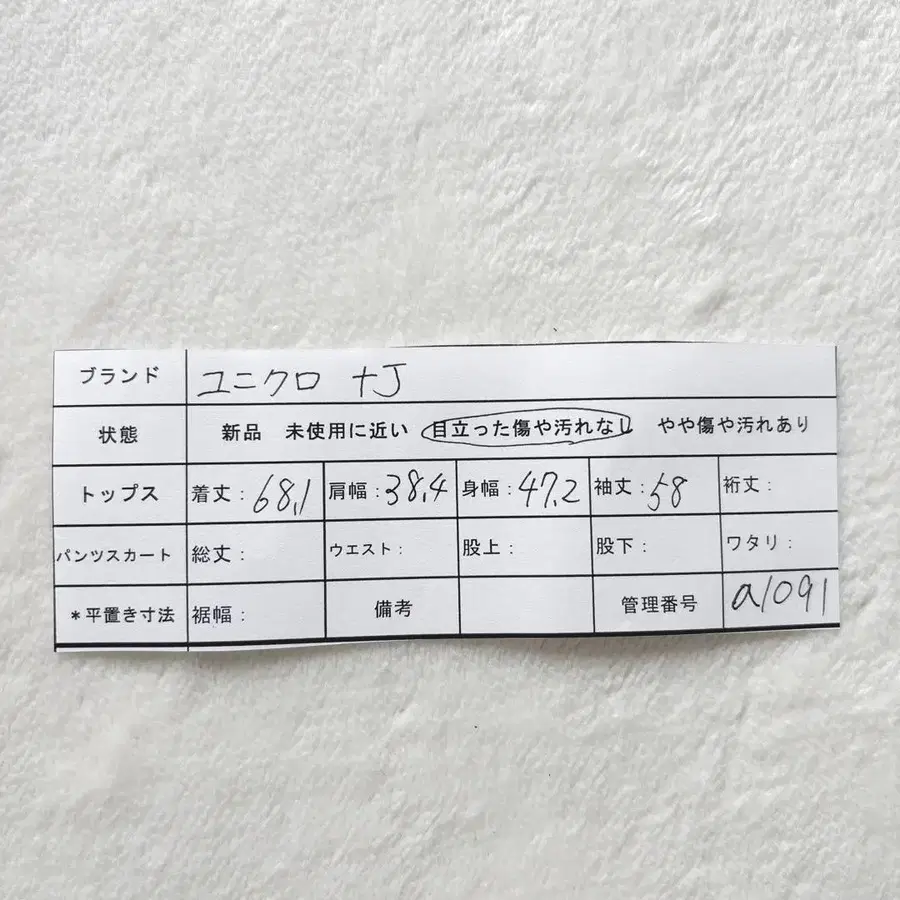 ブランド ユニクロ +J
状態 新品 未使用に近い 目立った傷や汚れなし やや傷や汚れあり
トップス 着丈:68,1 肩幅:38,4 身幅:47,2 袖丈:58 裄丈:
パンツスカート 総丈: ウエスト: 股上: 股下: ワタリ:
*平置き寸法 裾幅: 備考 管理番号 a1091